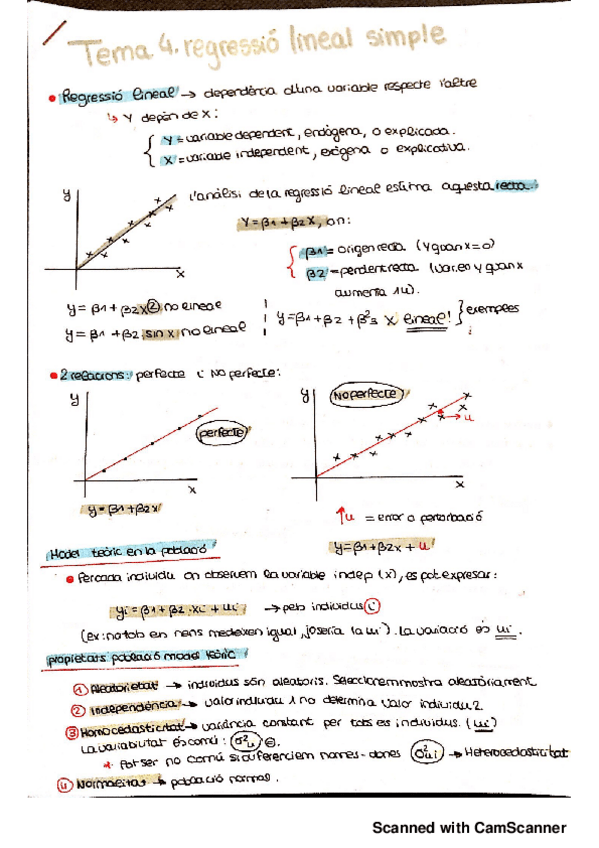 Tema 4. regressió lineal simple
• Regressió lineal → dependència d'una variable respecte l'altre
↳ Y depèn de X:
Y = variable dependent, endógena, o explicada.
X = variable independent, exògena o explicativa.
y
x
L'anàlisi de la regressió lineal estima aquesta recta.
Y = β1 + β2X, on:
β1 = origen recta (Y quan X=0)
β2 = pendent recta (var. en y quan x
aumenta 1u).
y = β1 + β2 x② no lineal
y = β1 + β2 sin x no lineal
y = β1 + β2 + β²3 x lineal! } exemples
• 2 relacions: perfecte i No perfecte:
y
perfecte
x
y = β1 + β2x
y
No perfecte
u
x
↑u = error o pertorbació
y = β1 + β2x + u
Model teòric en la població
• Per cada individu on observem la variable indep (x), es pot expresar:
yi = β1 + β2 · xi + ui → pels individus i
(ex: no tots en nens medeixen igual, jo seria la ui). La variació és ui.
propietats població model teòric
① Aleatorietat → individus són aleatoris. Seleccionem mostra aleatòriament.
② Independència → valor individu 1 no determina valor individu 2.
③ Homocedasticitat → variància constant per tots es individus. (ui)
La variabilitat és comú: σ²u
* Pot ser no comú si diferenciem homes-dones σ²ui → Heterocedasticitat
④ Normalitat → població normal.
Scanned with CamScanner